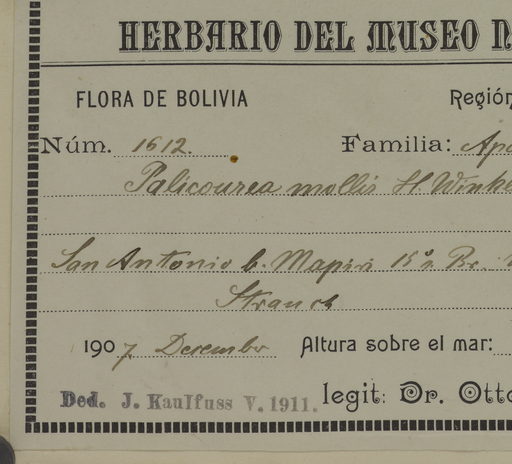 HERBARIO DEL MUSEO N
FLORA DE BOLIVIA Región
Núm. 1612. Familia: Apo
Palicourea mollis H. Winkl
San Antonio b. Mapiri 15° s. Br.
Strauch
1907 Desembr Altura sobre el mar:
Ded. J. Kaulfuss V. 1911. legit: Dr. Otto